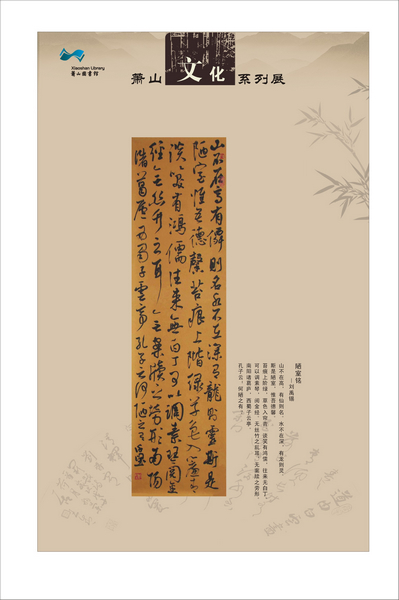 Xiaoshan Library
萧山图书馆
萧山文化系列展
山不在高有僊則名水不在深有龍則靈斯是
陋室惟吾德馨苔痕上階綠草色入簾青
談笑有鴻儒往來無白丁可以調素琴閱金
經無絲竹之亂耳無案牘之勞形南陽
諸葛廬西蜀子雲亭孔子云何陋之有
陋室铭
——刘禹锡
山不在高，有仙则名。水不在深，有龙则灵。
斯是陋室，惟吾德馨。
苔痕上阶绿，草色入帘青。谈笑有鸿儒，往来无白丁。
可以调素琴，阅金经。无丝竹之乱耳，无案牍之劳形。
南阳诸葛庐，西蜀子云亭。
孔子云，何陋之有？